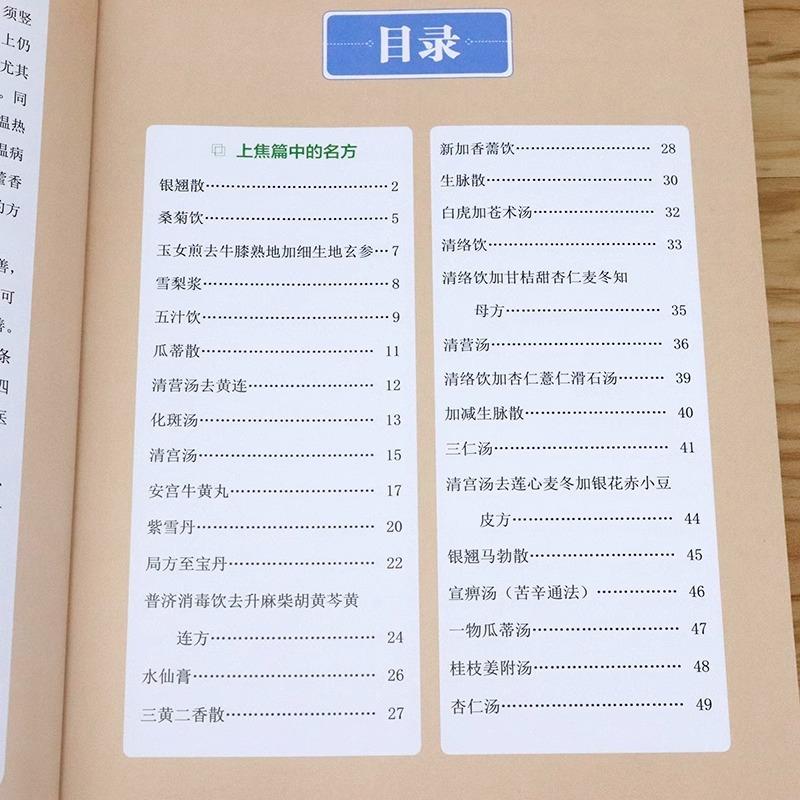 须竖
上仍
尤其
。同
温热
温病
藿香
的方
善，
可
善。
条
四
医
目录
上焦篇中的名方
银翘散……………………………2
桑菊饮……………………………5
玉女煎去牛膝熟地加细生地玄参…7
雪梨浆……………………………8
五汁饮……………………………9
瓜蒂散…………………………… 11
清营汤去黄连…………………… 12
化斑汤…………………………… 13
清宫汤…………………………… 15
安宫牛黄丸……………………… 17
紫雪丹…………………………… 20
局方至宝丹……………………… 22
普济消毒饮去升麻柴胡黄芩黄
连方…………………………… 24
水仙膏…………………………… 26
三黄二香散……………………… 27
新加香薷饮……………………… 28
生脉散…………………………… 30
白虎加苍术汤…………………… 32
清络饮…………………………… 33
清络饮加甘桔甜杏仁麦冬知
母方…………………………… 35
清营汤…………………………… 36
清络饮加杏仁薏仁滑石汤……… 39
加减生脉散……………………… 40
三仁汤…………………………… 41
清宫汤去莲心麦冬加银花赤小豆
皮方…………………………… 44
银翘马勃散……………………… 45
宣痹汤（苦辛通法）…………… 46
一物瓜蒂汤……………………… 47
桂枝姜附汤……………………… 48
杏仁汤…………………………… 49